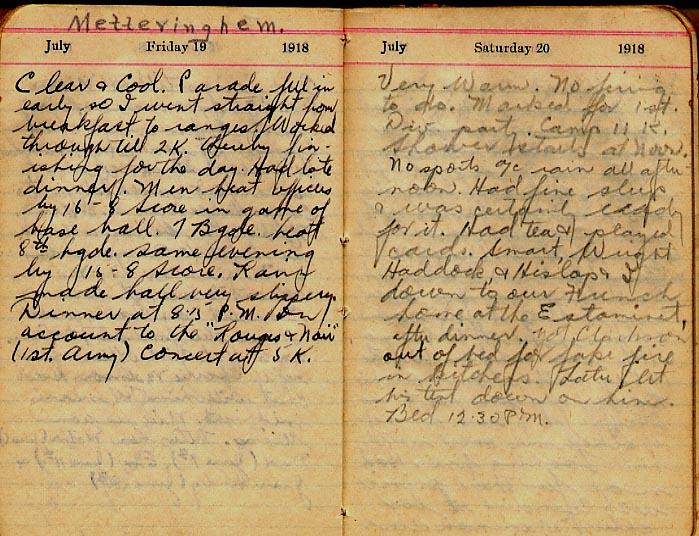 Metteringhem.
July Friday 19 1918
Clear & Cool. Parade fell in
early so I went straight from
breakfast to ranges. Worked
through till 2K. thereby fin-
ishing for the day. Had late
dinner. Men beat officers
by 16-8 score in game of
base ball. 7 Bgde. beat
8th bgde. same evening
by 16-8 score. Rain
made ball very slippery.
Dinner at 8.15 P.M. on
account to the "Rouges & Noir"
(1st. Army) Concert at 5 K.
July Saturday 20 1918
Very Warm. No firing
to do. Marked for 1st.
Div. party. Camp 11 K.
Shower starts at noon.
No sports a/c rain all after-
noon. Had fine sleep
& was certainly ready
for it. Had tea & played
cards. Smart, Wright
Haddock & Hislop & I
down to our French
home at the Estaminet,
after dinner. Got
out of bed for fake fire
in kitchens. Later let
his tent down on him.
Bed 12.30 P.M.